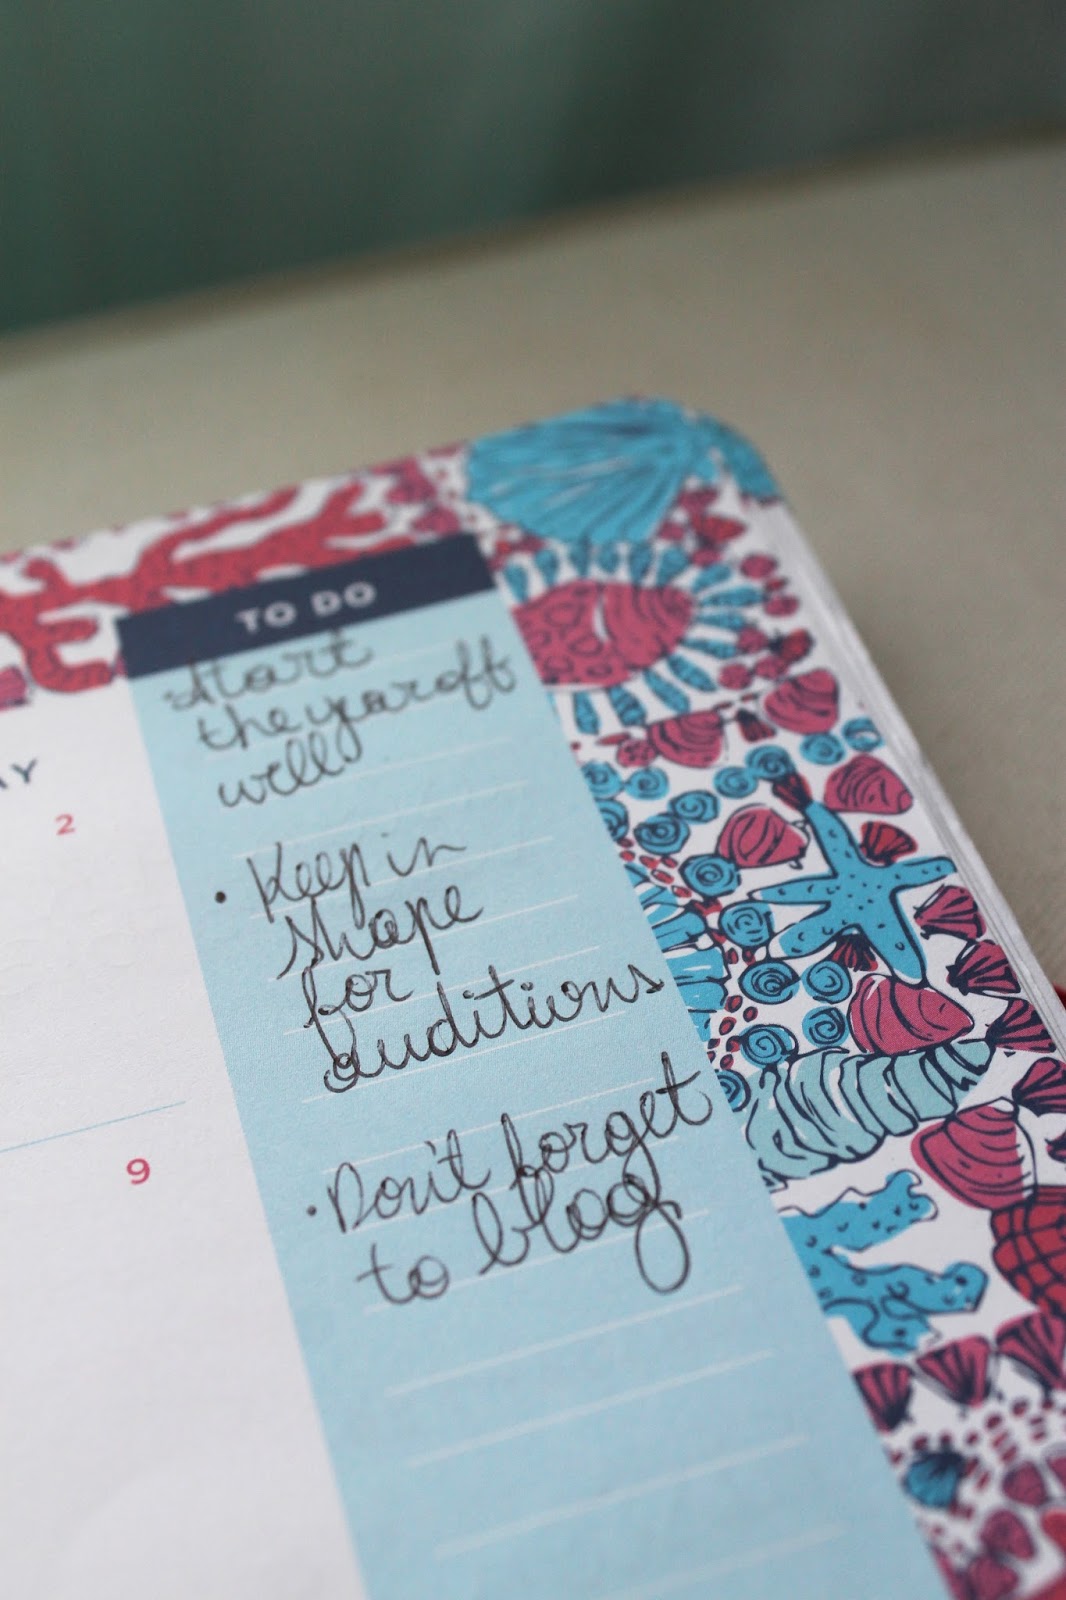 TO DO
Start
the year off
well
AY
2
• Keep in
shape
for
auditions
9
• Don't forget
to blog